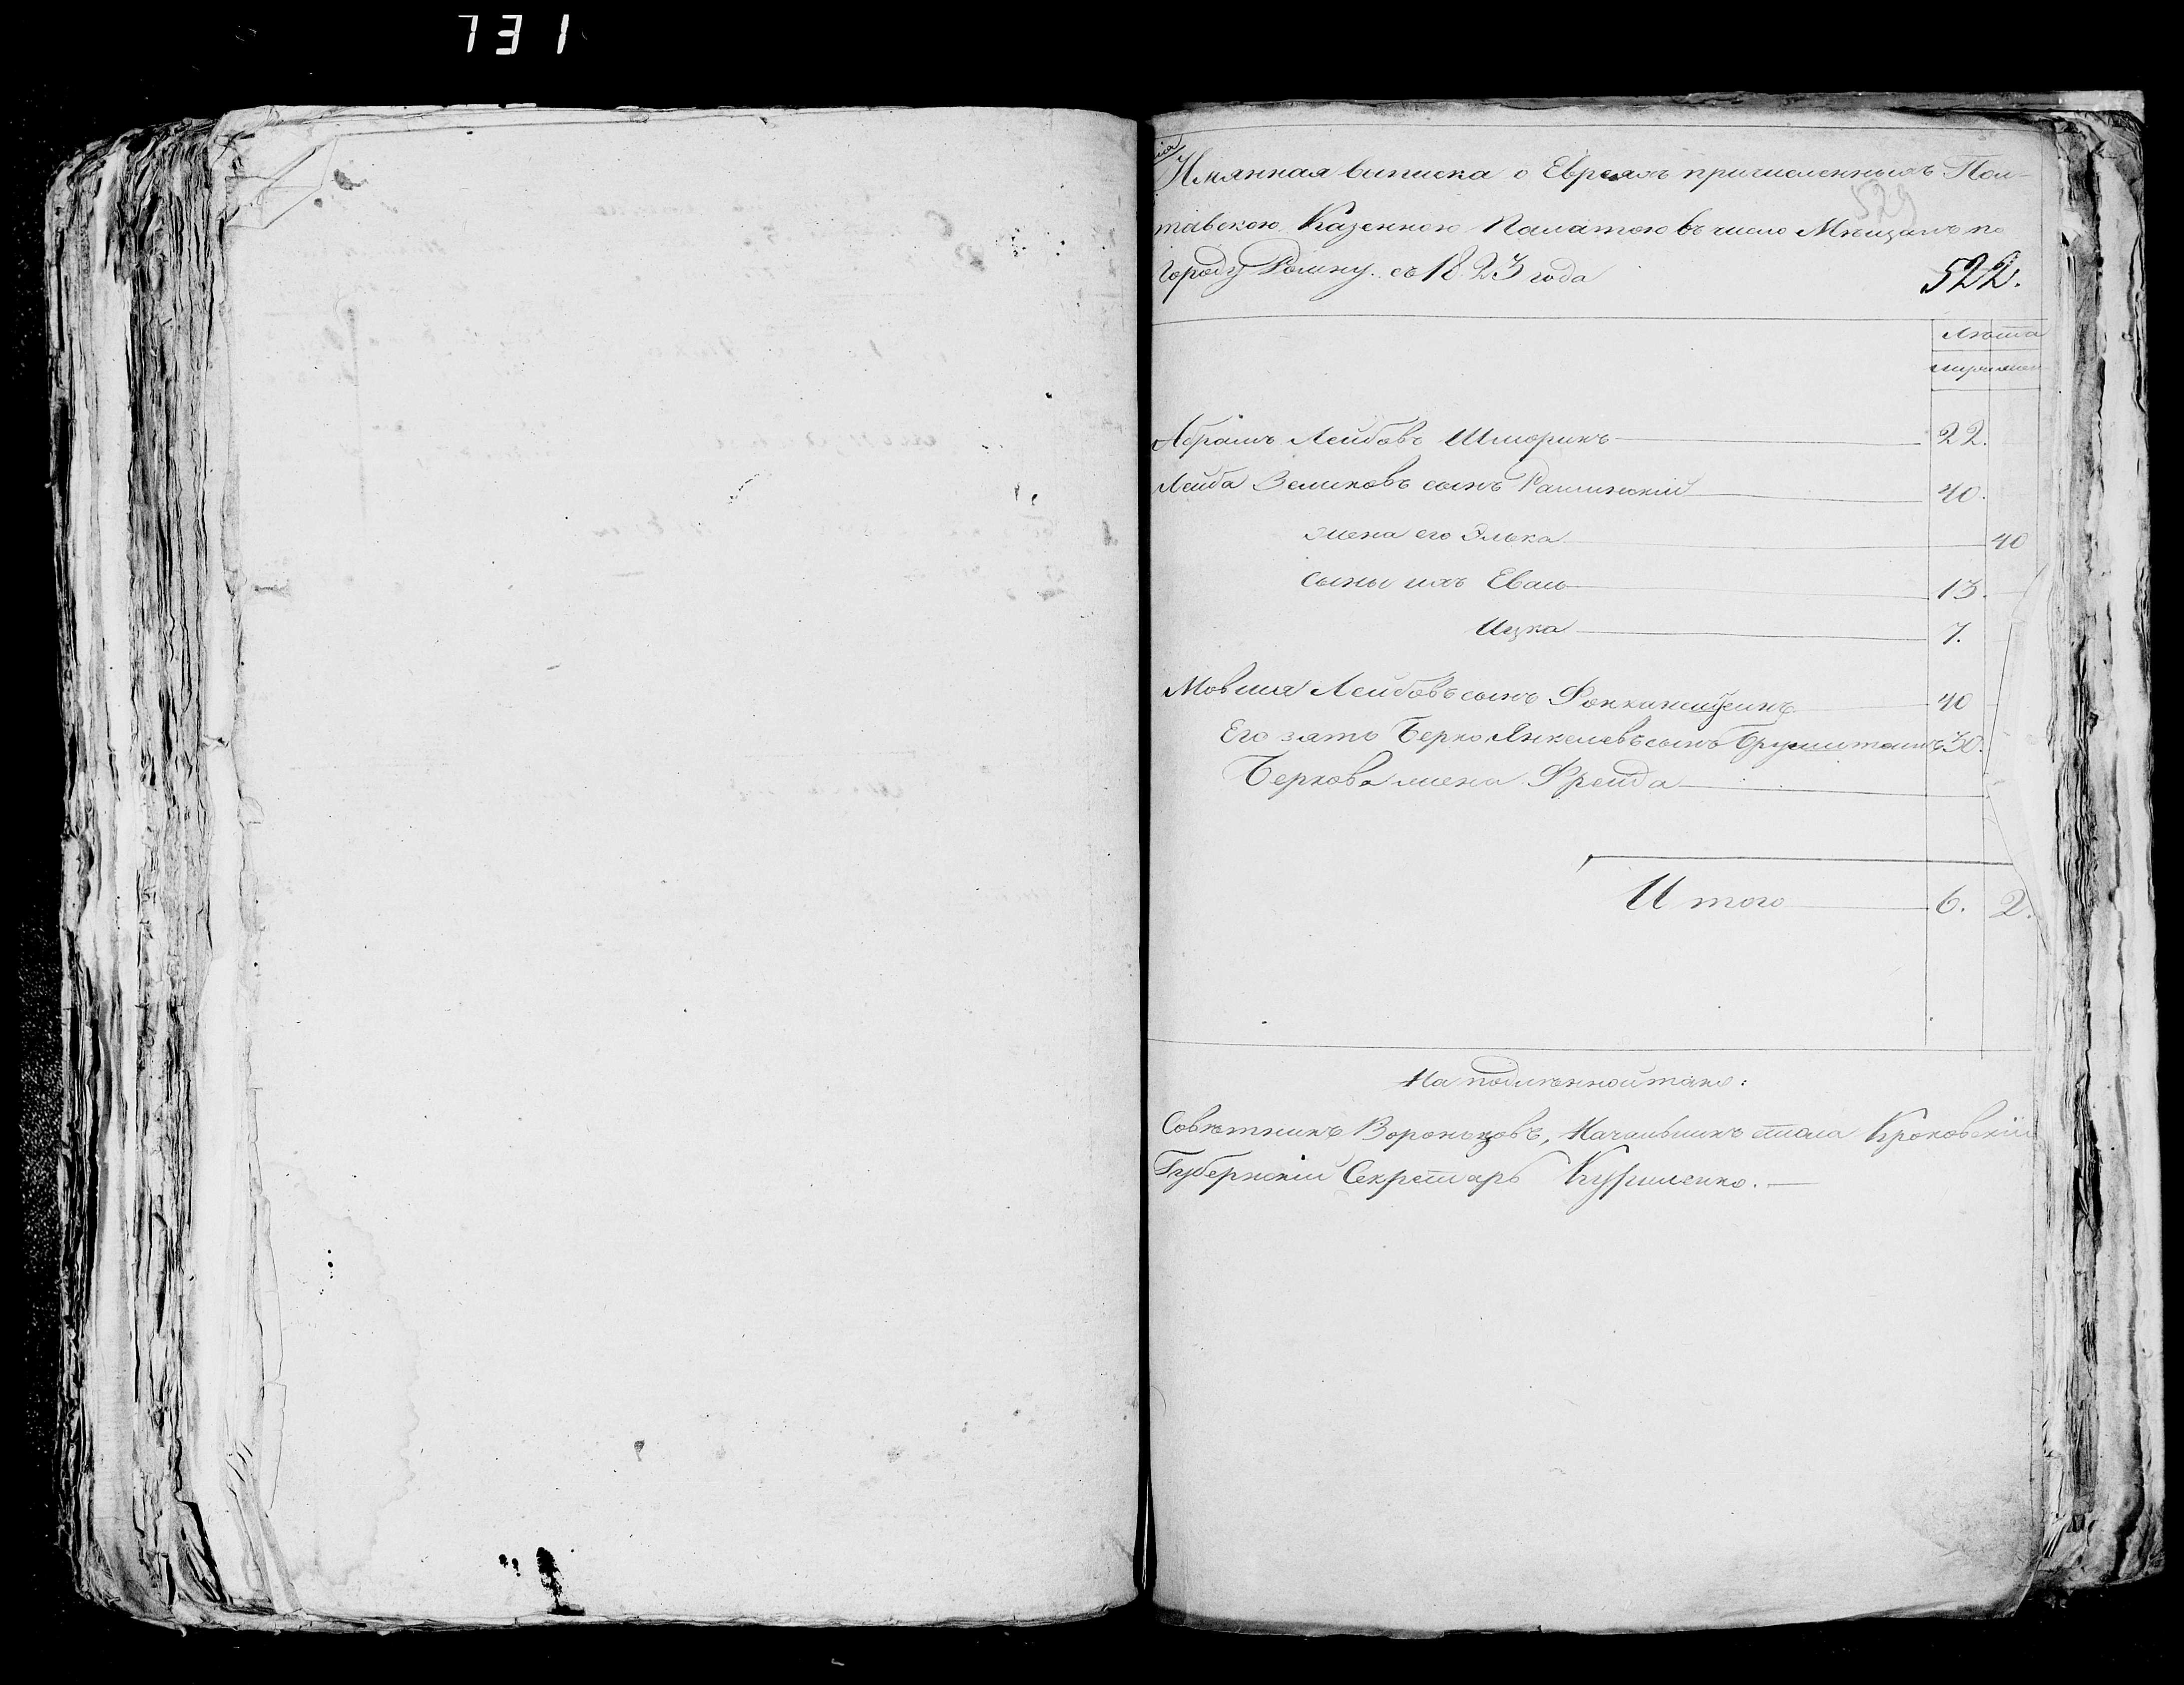 731
Имянная выписка о Евреяхъ причисленныхъ Пол-
529
тавскою Казенною Палатою въ число Мѣщанъ по
городу Ромну съ 1823 года
522.
Лѣта
муж жен
Абрамъ Лейбовъ Шморинъ 22.
Лейба Зеликовъ сынъ Рашинскій 40.
жена его Элька 40
сыны ихъ Евель 13.
Ицка 7.
Мовша Лейбовъ сынъ 40
Его зять Берко Янкелевъ сынъ 30.
Беркова жена Фрейда
Итого 6. 2.
На подлѣнной тако:
Совѣтникъ Вороньковъ, Начальникъ стола Кроковскій
Губернскій Секретарь Куриленко.